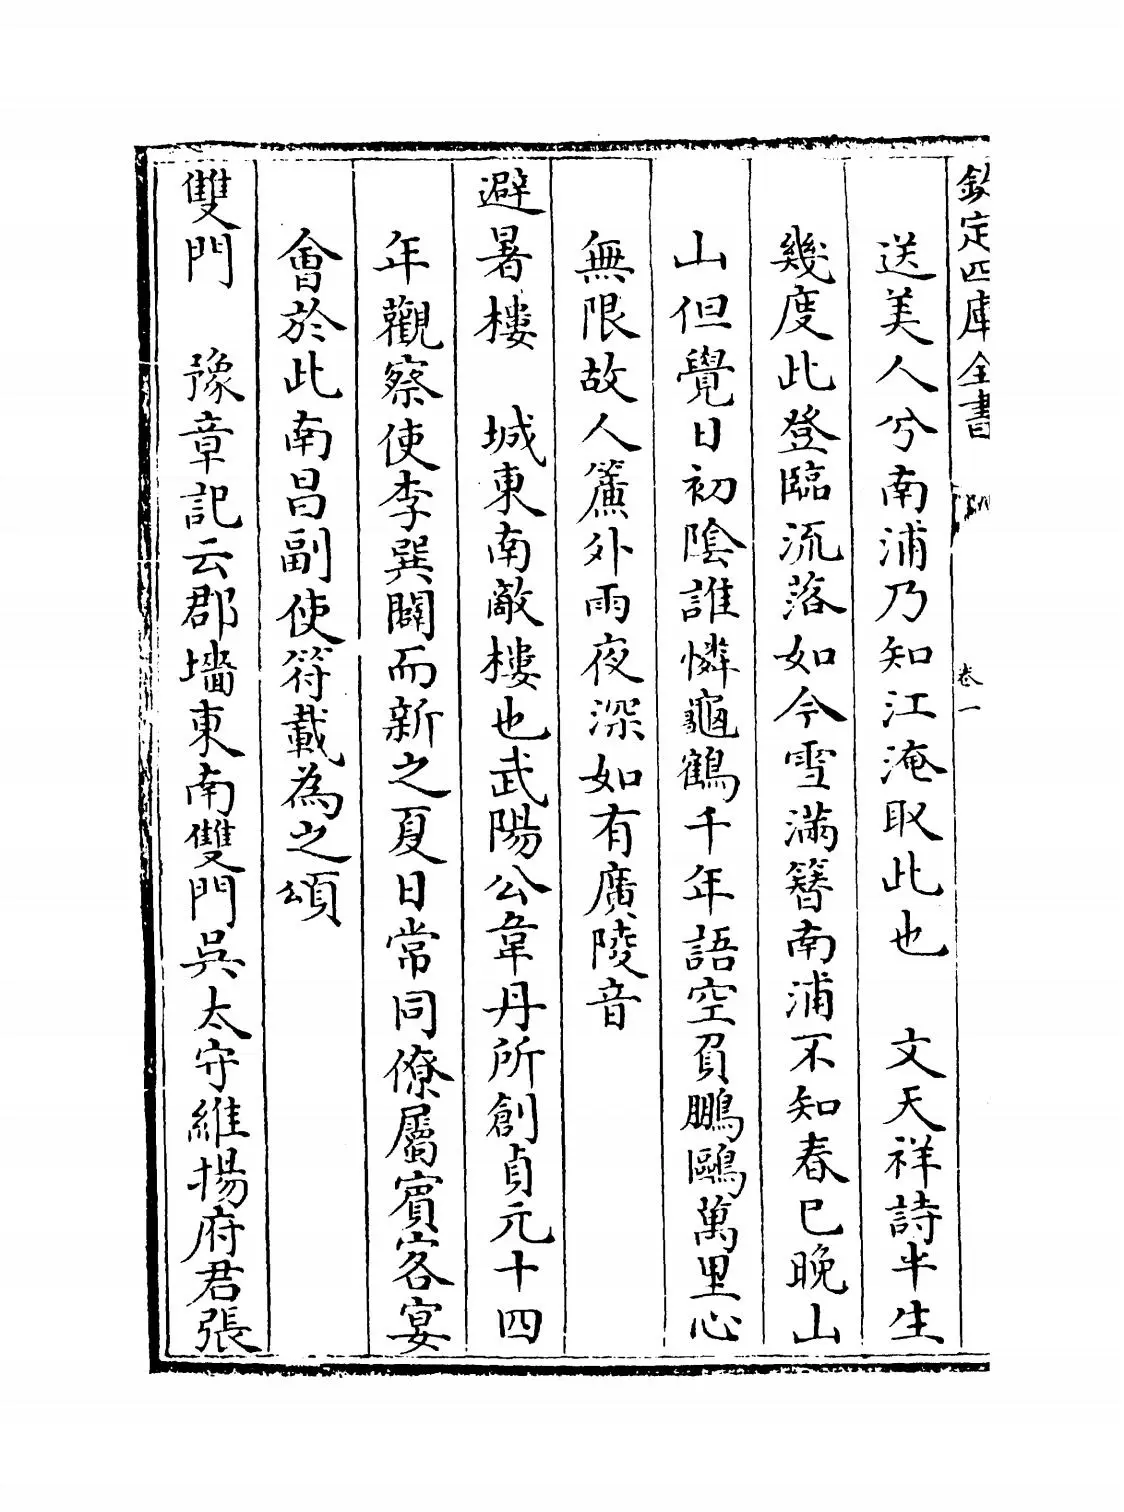 欽定四庫全書
卷一
送美人兮南浦乃知江淹取此也　文天祥詩半生
幾度此登臨流落如今雪滿簪南浦不知春已晚山
山但覺日初陰誰憐龜鶴千年語空負鵬鷗萬里心
無限故人簾外雨夜深如有廣陵音
避暑樓　城東南敵樓也武陽公韋丹所創貞元十四
年觀察使李巽闢而新之夏日常同僚屬賓客宴
會於此南昌副使符載為之頌
雙門　豫章記云郡墻東南雙門吳太守維揚府君張